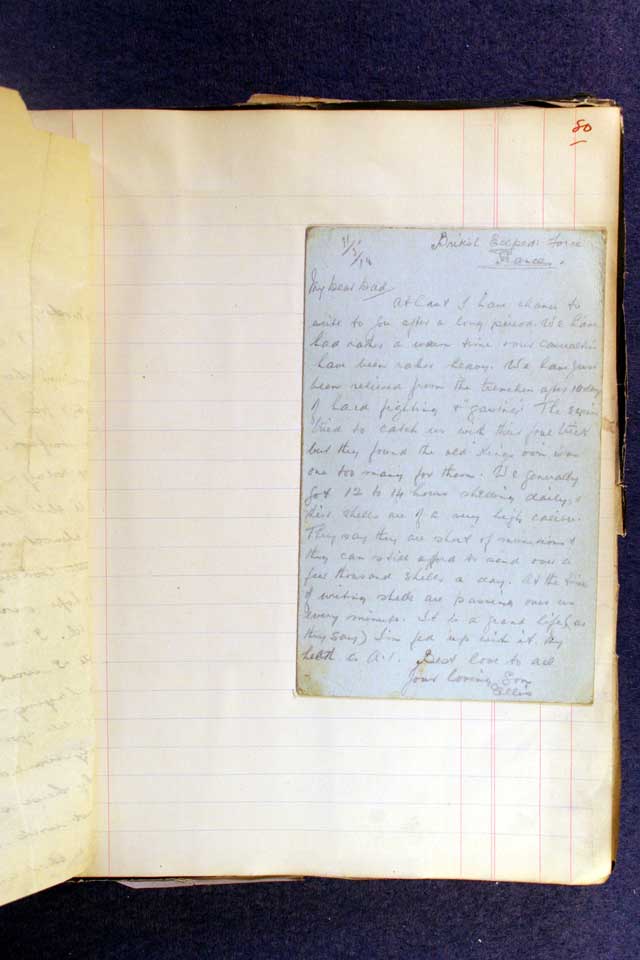 80
British Exped: Force
France.
My Dear Dad
At last I have chance to
write to you after a long period. We have
had rather a warm time & our casualties
have been rather heavy. We have just
been relieved from the trenches after 10 days
of hard fighting & "gassing" The
tried to catch us with their gas trick
but they found the old Kings own was
one too many for them. We generally
got 12 to 14 hours shelling daily, &
their shells are of a very high
They say they are short of munitions &
they can still afford to send over a
few thousand shells a day. At the time
of writing shells are passing over us
every minute. It is a grand life (as
they say) I'm fed up with it. My
health is A.1. Best love to all
Your loving Son
Ellis